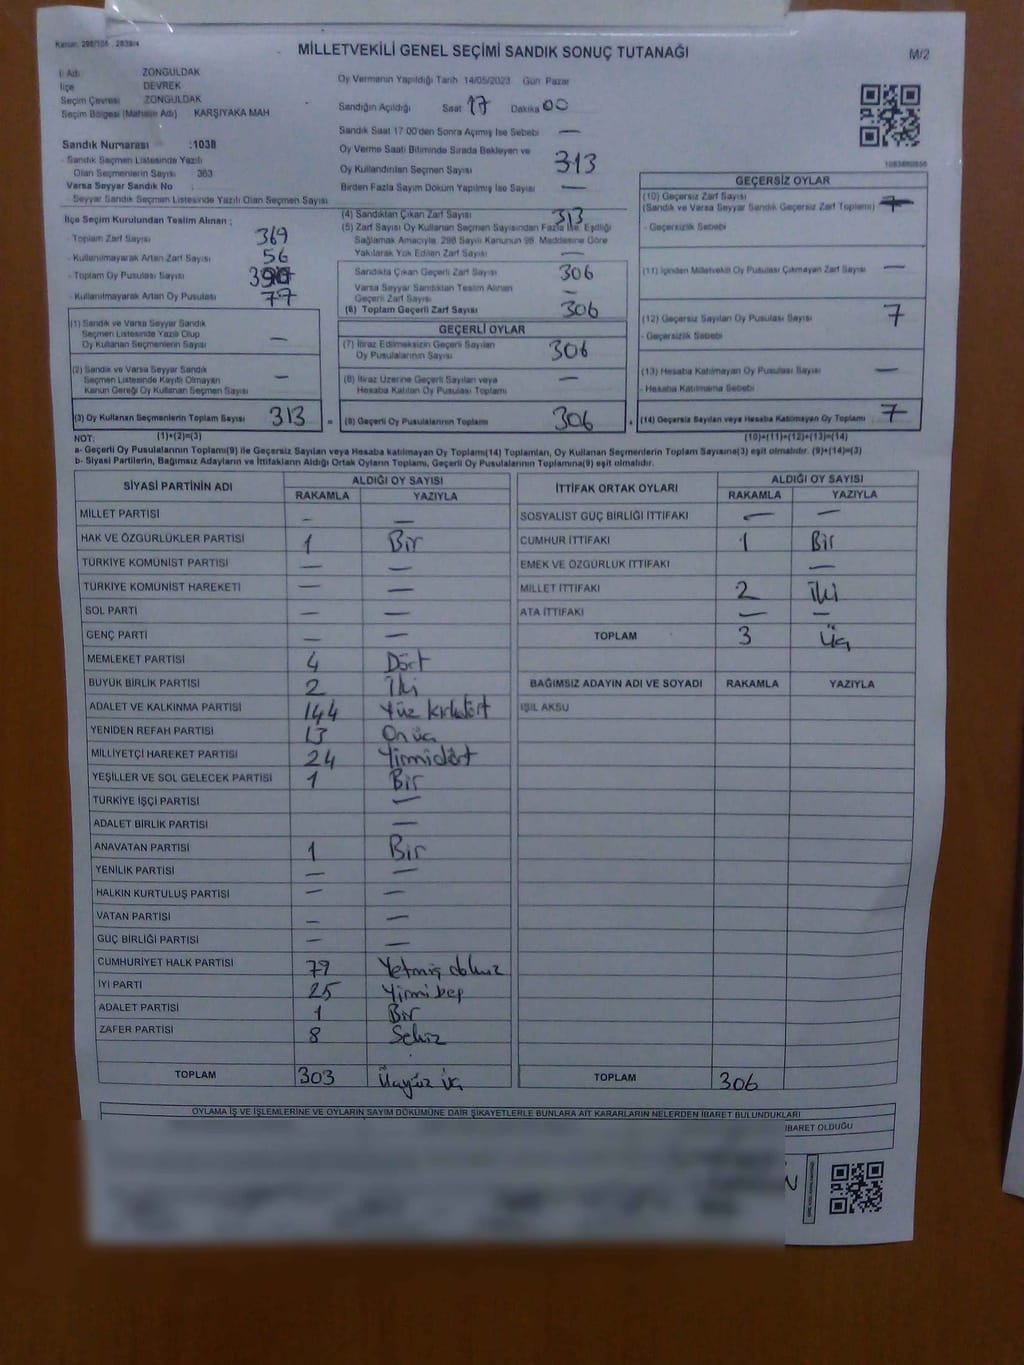 Kanun: 298/105 , 2839/4
MİLLETVEKİLİ GENEL SEÇİMİ SANDIK SONUÇ TUTANAĞI
M/2
İl Adı ZONGULDAK
İlçe DEVREK
Seçim Çevresi ZONGULDAK
Seçim Bölgesi (Mahalle Adı) KARŞIYAKA MAH
Sandık Numarası :1038
- Sandık Seçmen Listesinde Yazılı
Olan Seçmenlerin Sayısı 363
Varsa Seyyar Sandık No
- Seyyar Sandık Seçmen Listesinde Yazılı Olan Seçmen Sayısı
Oy Vermenin Yapıldığı Tarih 14/05/2023 Gün Pazar
Sandığın Açıldığı Saat 17 Dakika 00
Sandık Saat 17 00'den Sonra Açımış İse Sebebi —
Oy Verme Saati Bitiminde Sırada Bekleyen ve
Oy Kullandırılan Seçmen Sayısı 313
Birden Fazla Sayım Döküm Yapılmış İse Sayısı —
İlçe Seçim Kurulundan Teslim Alınan ;
- Toplam Zarf Sayısı 369
- Kullanılmayarak Artan Zarf Sayısı 56
- Toplam Oy Pusulası Sayısı
- Kullanılmayarak Artan Oy Pusulası 77
(1) Sandık ve Varsa Seyyar Sandık
Seçmen Listesinde Yazılı Olup
Oy Kullanan Seçmenlerin Sayısı —
(2) Sandık ve Varsa Seyyar Sandık
Seçmen Listesinde Kayıtlı Olmayan
Kanun Gereği Oy Kullanan Seçmen Sayısı —
(3) Oy Kullanan Seçmenlerin Toplam Sayısı 313 =
(4) Sandıktan Çıkan Zarf Sayısı 313
(5) Zarf Sayısı Oy Kullanan Seçmen Sayısından Fazla İse, Eşitliği
Sağlamak Amacıyla, 298 Sayılı Kanunun 98. Maddesine Göre
Yakılarak Yok Edilen Zarf Sayısı —
Sandıkta Çıkan Geçerli Zarf Sayısı 306
Varsa Seyyar Sandıktan Teslim Alınan
Geçerli Zarf Sayısı —
(6) Toplam Geçerli Zarf Sayısı 306
GEÇERLİ OYLAR
(7) İtiraz Edilmeksizin Geçerli Sayılan
Oy Pusulalarının Sayısı 306
(8) İtiraz Üzerine Geçerli Sayılan veya
Hesaba Katılan Oy Pusulası Toplamı —
(9) Geçerli Oy Pusulalarının Toplamı 306 +
GEÇERSİZ OYLAR
(10) Geçersiz Zarf Sayısı
(Sandık ve Varsa Seyyar Sandık Geçersiz Zarf Toplamı)
- Geçersizlik Sebebi
(11) İçinden Milletvekili Oy Pusulası Çıkmayan Zarf Sayısı —
(12) Geçersiz Sayılan Oy Pusulası Sayısı 7
- Geçersizlik Sebebi
(13) Hesaba Katılmayan Oy Pusulası Sayısı —
- Hesaba Katılmama Sebebi
(14) Geçersiz Sayılan veya Hesaba Katılmayan Oy Toplamı 7
NOT: (1)+(2)=(3) (10)+(11)+(12)+(13)=(14)
a- Geçerli Oy Pusulalarının Toplamı(9) ile Geçersiz Sayılan veya Hesaba katılmayan Oy Toplamı(14) Toplamları, Oy Kullanan Seçmenlerin Toplam Sayısına(3) eşit olmalıdır. (9)+(14)=(3)
b- Siyasi Partilerin, Bağımsız Adayların ve İttifakların Aldığı Ortak Oyların Toplamı, Geçerli Oy Pusulalarının Toplamına(9) eşit olmalıdır.
SİYASİ PARTİNİN ADI ALDIĞI OY SAYISI
RAKAMLA YAZIYLA
MİLLET PARTİSİ — —
HAK VE ÖZGÜRLÜKLER PARTİSİ 1 Bir
TÜRKİYE KOMÜNİST PARTİSİ — —
TÜRKİYE KOMÜNİST HAREKETİ — —
SOL PARTİ — —
GENÇ PARTİ — —
MEMLEKET PARTİSİ 4 Dört
BÜYÜK BİRLİK PARTİSİ 2 İki
ADALET VE KALKINMA PARTİSİ 144 Yüz kırkdört
YENİDEN REFAH PARTİSİ 13 Onüç
MİLLİYETÇİ HAREKET PARTİSİ 24 Yirmidört
YEŞİLLER VE SOL GELECEK PARTİSİ 1 Bir
TÜRKİYE İŞÇİ PARTİSİ —
ADALET BİRLİK PARTİSİ —
ANAVATAN PARTİSİ 1 Bir
YENİLİK PARTİSİ — —
HALKIN KURTULUŞ PARTİSİ — —
VATAN PARTİSİ — —
GÜÇ BİRLİĞİ PARTİSİ — —
CUMHURİYET HALK PARTİSİ 79 Yetmiş dokuz
İYİ PARTİ 25 Yirmi beş
ADALET PARTİSİ 1 Bir
ZAFER PARTİSİ 8 Sekiz
TOPLAM 303 Üçyüz üç
İTTİFAK ORTAK OYLARI ALDIĞI OY SAYISI
RAKAMLA YAZIYLA
SOSYALİST GÜÇ BİRLİĞİ İTTİFAKI — —
CUMHUR İTTİFAKI 1 Bir
EMEK VE ÖZGÜRLÜK İTTİFAKI —
MİLLET İTTİFAKI 2 İki
ATA İTTİFAKI — —
TOPLAM 3 Üç
BAĞIMSIZ ADAYIN ADI VE SOYADI RAKAMLA YAZIYLA
IŞIL AKSU
TOPLAM 306
OYLAMA İŞ VE İŞLEMLERİNE VE OYLARIN SAYIM DÖKÜMÜNE DAİR ŞİKAYETLERLE BUNLARA AİT KARARLARIN NELERDEN İBARET BULUNDUKLARI
İBARET OLDUĞU